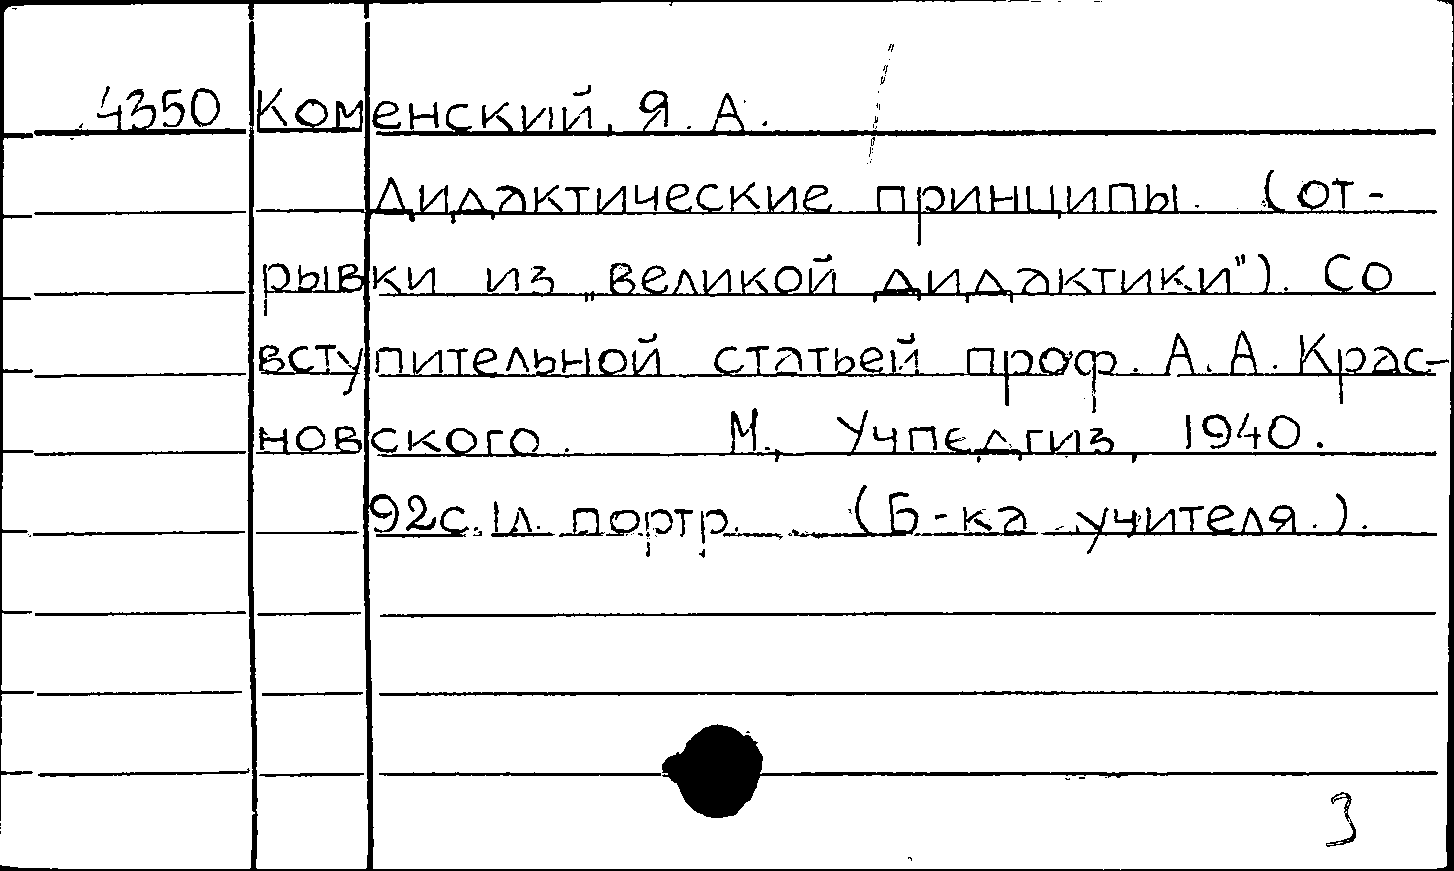 4350 Коменский, Я. А.
Дидактические принципы. (от-
рывки из „великой дидактики"). Со
вступительной статьей проф. А. А. Крас-
новского. М., Учпедгиз, 1940.
92с. 1л. портр. (Б-ка учителя.).
3